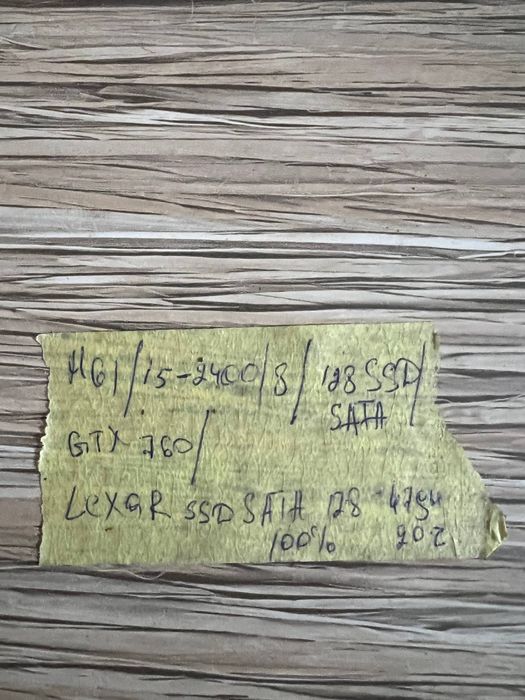 H61/i5-2400/8/128 SSD/
SATA
GTX 760/
LexaR SSD SATA 128 4794
100% 202